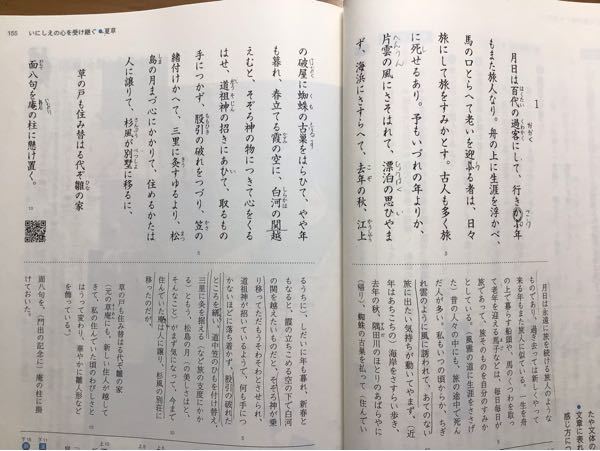 たや文体の
文章に表れ
感じ方につ
1
月日は百代の過客にして、行きかふ年
もまた旅人なり。舟の上に生涯を浮かべ、
馬の口とらへて老いを迎ふる者は、日々
旅にして旅をすみかとす。古人も多く旅
に死せるあり。予もいづれの年よりか、
片雲の風にさそはれて、漂泊の思ひやま
ず、海浜にさすらへて、去年の秋、江上
月日は永遠に旅を続ける旅人のような
ものであり、過ぎ去っては新しくやって
来る年もまた旅人に似ている。一生を舟
の上で暮らす船頭や、馬のくつわを取っ
て老年を迎える馬子などは、毎日毎日が
旅であって、旅そのものを自分のすみか
としている。（風雅の道に生涯をささげ
た）昔の人々の中にも、旅の途中で死ん
だ人が多い。私もいつの頃からか、ちぎ
れ雲のように風に誘われて、あてのない
旅に出たい気持ちが動いてやまず、（近
年はあちこちの）海岸をさすらい歩き、
去年の秋、隅田川のほとりのあばらやに
（帰り）、蜘蛛の古巣を払って（住んでい
155 いにしえの心を受け継ぐ●夏草
の破屋に蜘蛛の古巣をはらひて、やや年
も暮れ、春立てる霞の空に、白河の関越
えむと、そぞろ神の物につきて心をくる
はせ、道祖神の招きにあひて、取るもの
手につかず、股引の破れをつづり、笠の
緒付けかへて、三里に灸すゆるより、松
島の月まづ心にかかりて、住めるかたは
人に譲りて、杉風が別墅に移るに、
草の戸も住み替はる代ぞ雛の家
面八句を庵の柱に懸け置く。
るうちに）、しだいに年も暮れ、新春と
もなると、霞の立ちこめる空の下で白河
の関を越えたいものだと、そぞろ神が乗
り移ってただもうそわそわとさせられ、
道祖神が招いているようで、何も手につ
かないほどに落ち着かず、股引の破れた
ところを繕い、道中笠のひもを付け替え、
三里に灸を据える（など旅の支度にかか
る）ともう、松島の月（の美しさはと、
そんなこと）がまず気になって、今まで
住んでいた所は人に譲り、杉風の別荘に
移ったのだが、
草の戸も住み替はる代ぞ雛の家
（元の草庵にも、新しい住人が越して
きて、私の住んでいた頃のわびしさと
はうって変わり、華やかに雛人形など
を飾っている。）
面八句を、（門出の記念に）庵の柱に掛
けておいた。